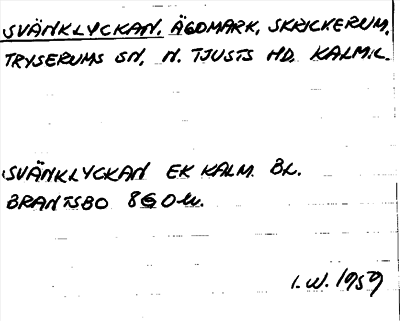 SVÄNKLYCKAN, ÄGOMARK, SKRICKERUM,
TRYSERUMS SN, N. TJUSTS HD. KALM.L.
SVÄNKLYCKAN EK KALM. BL.
BRANTSBO 8G0
I.W. 1959